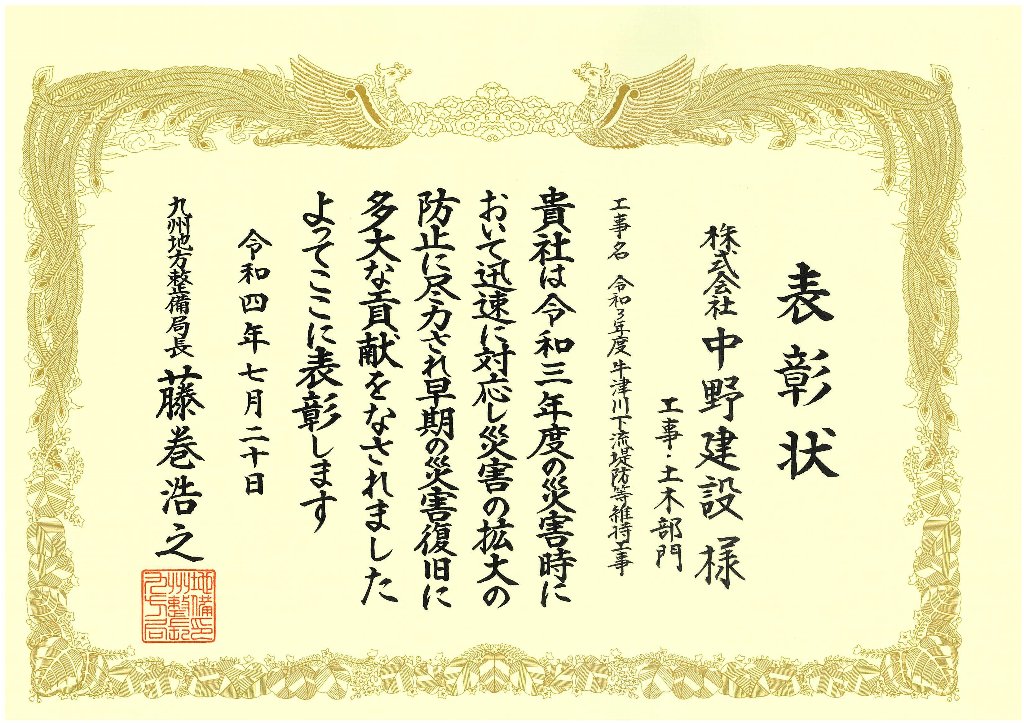 表彰状
株式会社 中野建設 様
工事・土木部門
工事名 令和3年度 牛津川下流堤防等維持工事
貴社は令和三年度の災害時に
おいて迅速に対応し災害の拡大の
防止に尽力され早期の災害復旧に
多大な貢献をなされました
よってここに表彰します
令和四年七月二十日
九州地方整備局長 藤巻浩之